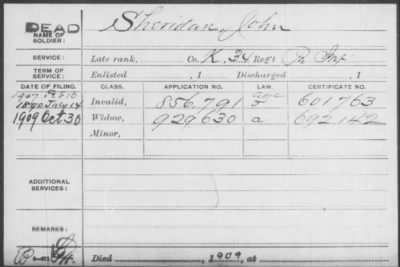 DEAD
NAME OF SOLDIER: Sheridan, John
SERVICE: Late rank, Co. K, 34 Reg't Pa Inf
TERM OF SERVICE: Enlisted , 1 Discharged , 1
DATE OF FILING. CLASS. APPLICATION NO. LAW. CERTIFICATE NO.
1907
1890 July 14 Invalid, 856.791 601763
1909 Oct. 30 Widow, 929.630 a 692.142
Minor,
ADDITIONAL SERVICES:
REMARKS:
Died , 1909, at